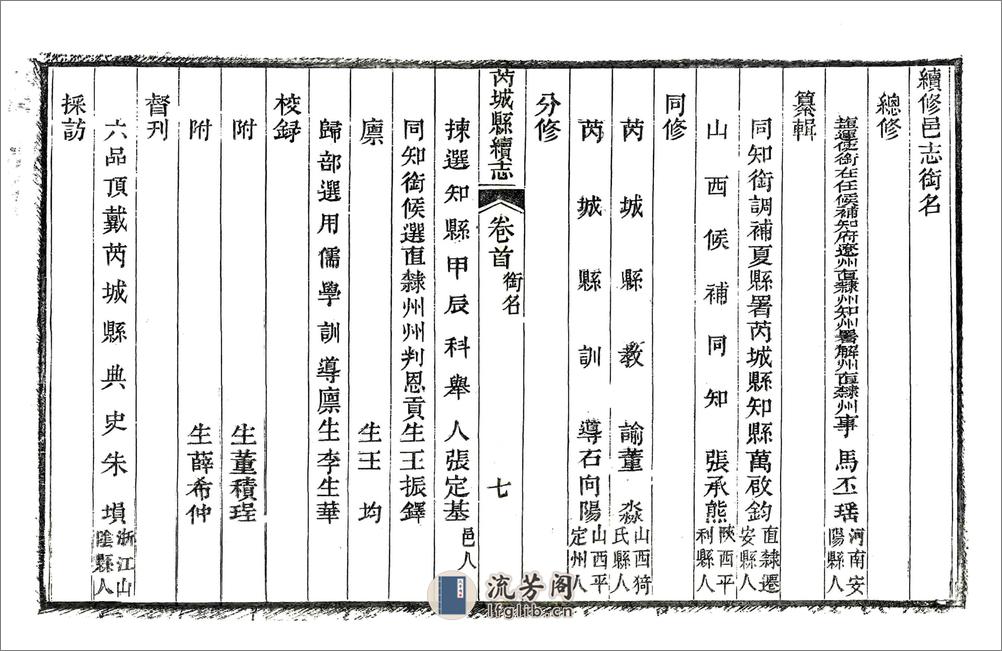 續修邑志銜名
總修
鹽運使銜在任候補知府遼州直隸州知州署解州直隸州事馬丕瑤河南安陽縣人
纂輯
同知銜調補夏縣署芮城縣知縣萬啟鈞直隸遷安縣人
山西候補同知張承熊陝西平利縣人
同修
芮城縣教諭董淼山西猗氏縣人
芮城縣訓導石向陽山西平定州人
分修
芮城縣續志
卷首
銜名
七
揀選知縣甲辰科舉人張定基邑人
同知銜候選直隸州州判恩貢生王振鐸
廪生王均
歸部選用儒學訓導廪生李生華
校録
附生董積珵
附生薛希仲
督刊
六品頂戴芮城縣典史朱塤浙江山陰縣人
採訪
流芳阁
lfglib.cn